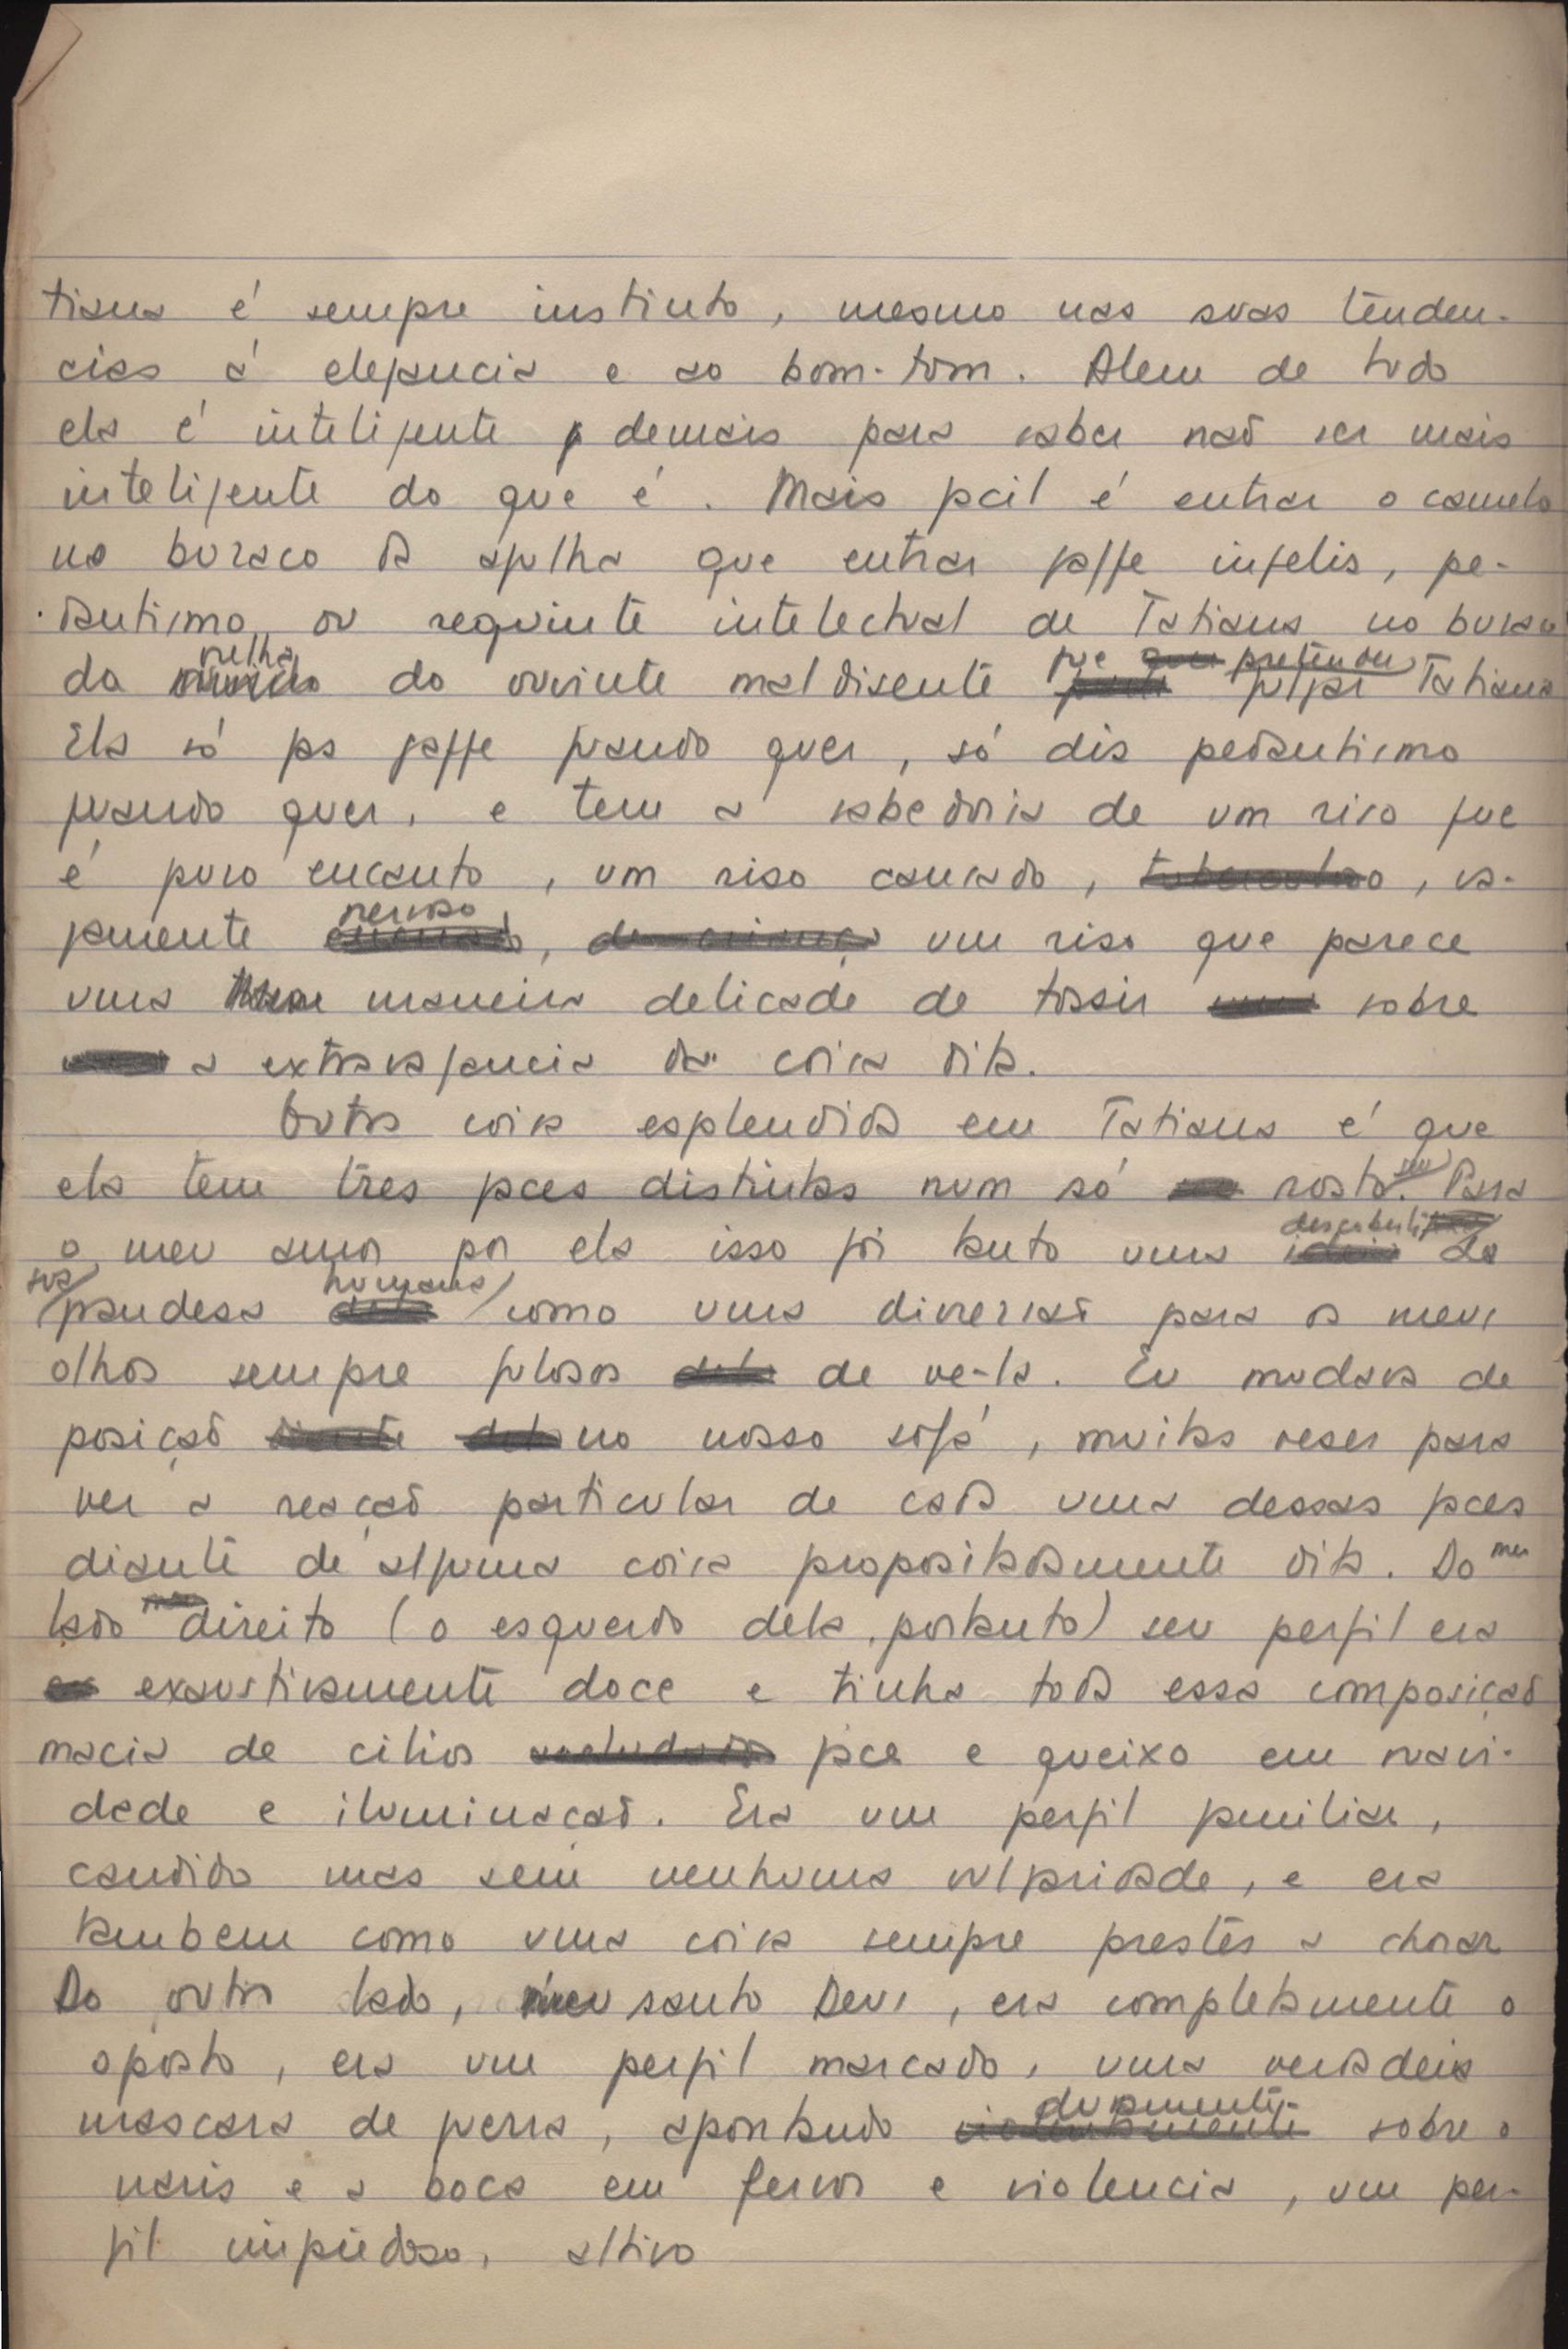 tiana é sempre instinto, mesmo nas suas tenden-
cias á elegancia e ao bom-tom. Alem de tudo
ela é inteligente demais para saber naõ ser mais
inteligente do que é. Mais facil é entrar o camelo
no buraco da agulha que entrar gaffe infelis, pe-
dantismo ou requinte intelectual de Tatiana no buraco
da orelha do ouvinte maldisente que pretendeu julgar Tatiana
Ela só fas gaffe quando quer, só dis pedantismo
quando quer, e tem a sabedoria de um riso que
é puro encanto, um riso cansado, , va-
gamente nervoso, um riso que parece
uma maneira delicada de tossir sobre
a extravagancia da coisa dita.
Outra coisa esplendida em Tatiana é que
ela tem três faces distintas num só rosto seu. Para
o meu amor por ela isso foi tanto uma da
sua grandesa humana como uma diversaõ para os meus
olhos sempre gulosos de ve-la. Eu mudava de
posiçaõ no nosso sofá, muitas veses para
ver a reaçaõ particular de cada uma dessas faces
diante de alguma coisa propositadamente dita. Do meu
lado direito (o esquerdo dela, portanto) seu perfil era
exaustivamente doce e tinha toda essa composiçaõ
macia de cilios face e queixo em suavi-
dade e iluminaçaõ. Era um perfil familiar,
candido mas sem nenhuma vulgaridade, e era
tambem como uma coisa sempre prestes a chorar
Do outro lado, meu santo Deus, era completamente o
oposto, era um perfil marcado, uma verdadeira
mascara de guerra, apontando duramente sobre o
naris e a boca em fervor e violencia, um per-
fil impiedoso, altivo